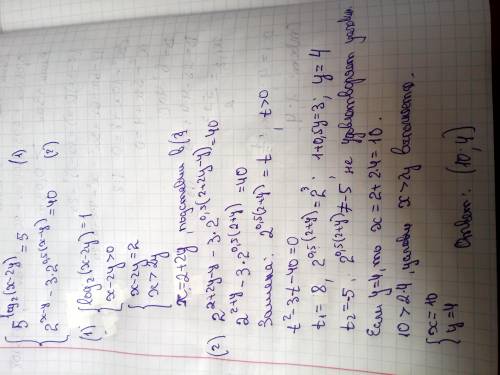 { 5^(log₂(x-2y)) = 5 (1)
2^(x-y) - 3·2^(0,5(x-y)) = 40 (2)
(1) { log₂(x-2y) = 1
x-2y>0
{ x-2y=2
x>2y
x=2+2y, подставим в (2)
(2) 2^(2+2y-y) - 3·2^(0,5(2+2y-y)) = 40
2^(2+y) - 3·2^(0,5(2+y)) = 40
Замена: 2^(0,5(2+y)) = t, t>0
t²-3t-40=0
t₁=8, 2^(0,5(2+y)) = 2³; 1+0,5y=3; y=4
t₂=-5; 2^(0,5(2+y)) ≠ -5 не удовлетворяет условию
Если y=4, то x=2+2·4=10.
10>2·4, условие x>2y выполняется.
{ x=10
y=4 Ответ: (10; 4)